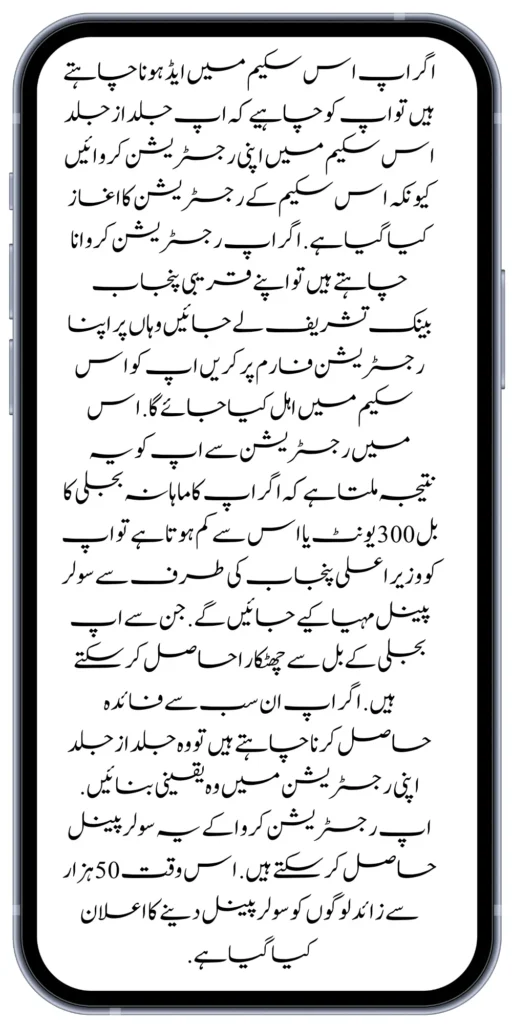 اگر اپ اس سکیم میں ایڈ ہونا چاہتے
ہیں تو اپ کو چاہیے کہ اپ جلد از جلد
اس سکیم میں اپنی رجسٹریشن کروائیں
کیونکہ اس سکیم کے رجسٹریشن کا اغاز
کیا گیا ہے. اگر اپ رجسٹریشن کروانا
چاہتے ہیں تو اپنے قریبی پنجاب
بینک تشریف لے جائیں وہاں پر اپنا
رجسٹریشن فارم پر کریں اپ کو اس
سکیم میں اہل کیا جائے گا. اس
میں رجسٹریشن سے اپ کو یہ
نتیجہ ملتا ہے کہ اگر اپ کا ماہانہ بجلی کا
بل 300 یونٹ یا اس سے کم ہوتا ہے تو اپ
کو وزیراعلی پنجاب کی طرف سے سولر
پینل مہیا کیے جائیں گے. جن سے اپ
بجلی کے بل سے چھٹکارا حاصل کر سکتے
ہیں. اگر اپ ان سب سے فائدہ
حاصل کرنا چاہتے ہیں تو وہ جلد از جلد
اپنی رجسٹریشن میں وہ یقینی بنائیں.
اپ رجسٹریشن کروا کے یہ سولر پینل
حاصل کر سکتے ہیں. اس وقت 50 ہزار
سے زائد لوگوں کو سولر پینل دینے کا اعلان
کیا گیا ہے.